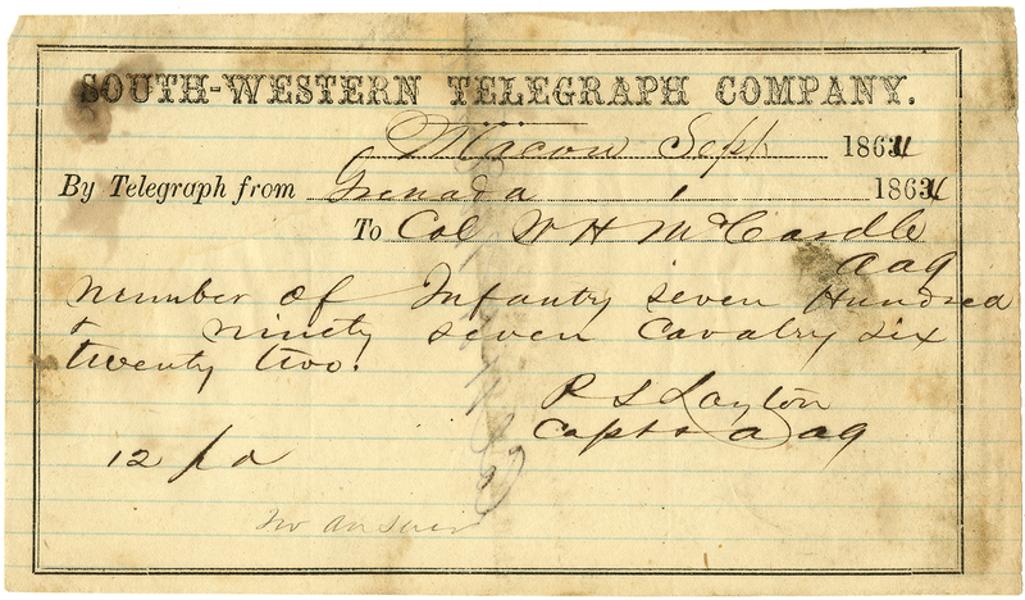 SOUTH-WESTERN TELEGRAPH COMPANY.
Macon Sept 1864
By Telegraph from Grenada 1 1864
To Col W H McCardle
aag
Number of Infantry seven Hundred
& ninety seven Cavalry six
twenty two.
R S Layton
Capt & a ag
12 pd
no answer